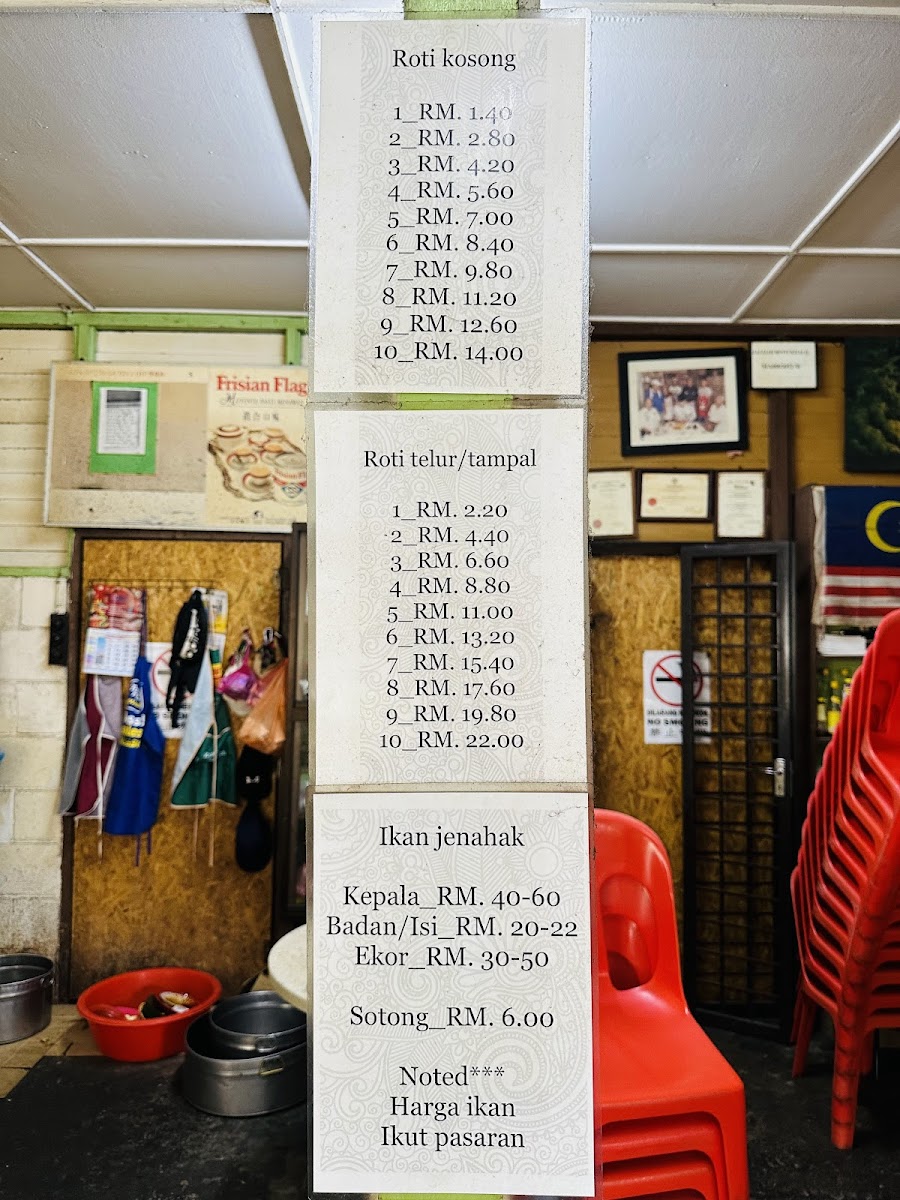 Roti kosong
1_RM. 1.40
2_RM. 2.80
3_RM. 4.20
4_RM. 5.60
5_RM. 7.00
6_RM. 8.40
7_RM. 9.80
8_RM. 11.20
9_RM. 12.60
10_RM. 14.00
Roti telur/tampal
1_RM. 2.20
2_RM. 4.40
3_RM. 6.60
4_RM. 8.80
5_RM. 11.00
6_RM. 13.20
7_RM. 15.40
8_RM. 17.60
9_RM. 19.80
10_RM. 22.00
Ikan jenahak
Kepala_RM. 40-60
Badan/Isi_RM. 20-22
Ekor_RM. 30-50
Sotong_RM. 6.00
Noted***
Harga ikan
Ikut pasaran
Frisian Flag
NO SMOKING